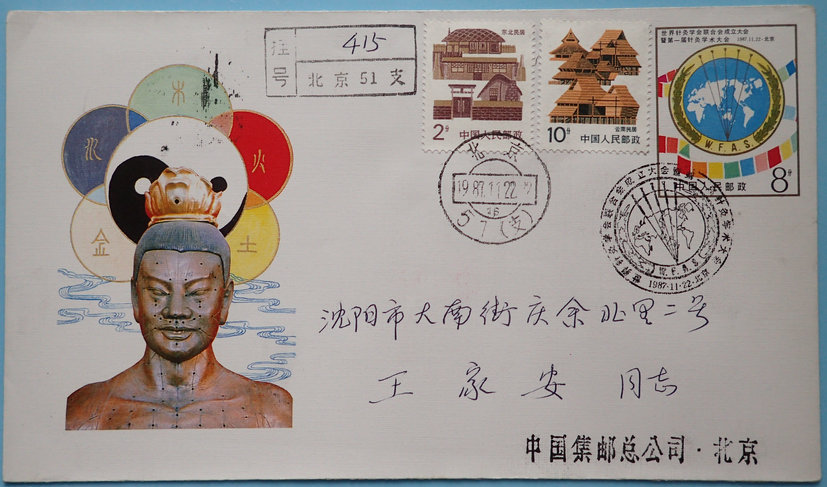 注号 415
北京51支
东北民居
2分 中国人民邮政
云南民居
10分 中国人民邮政
世界针灸学会联合会成立大会
暨第一届针灸学术大会
1987.11.22-北京
W.F.A.S.
中国人民邮政 8分
北京
1987.11.22
57(支)
W.F.A.S.
1987·11·22·北京
木
水
火
金
土
沈阳市大南街庆余北里二号
王家安 同志
中国集邮总公司·北京